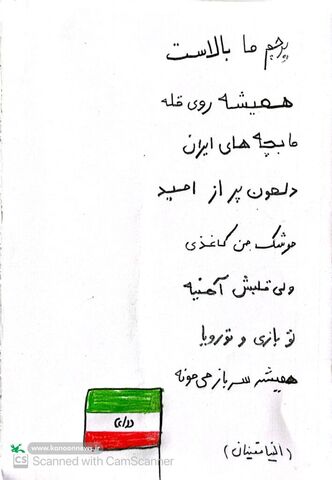 پرچم ما بالاست
همیشه روی قله
ما بچه های ایران
دلمون پر از امید
موشک من کاغذی
ولی قلبش آهنیه
تو بازی و تو رویا
همیشه سرباز می مونه
www.kanoonnews.ir
CS Scanned with CamScanner